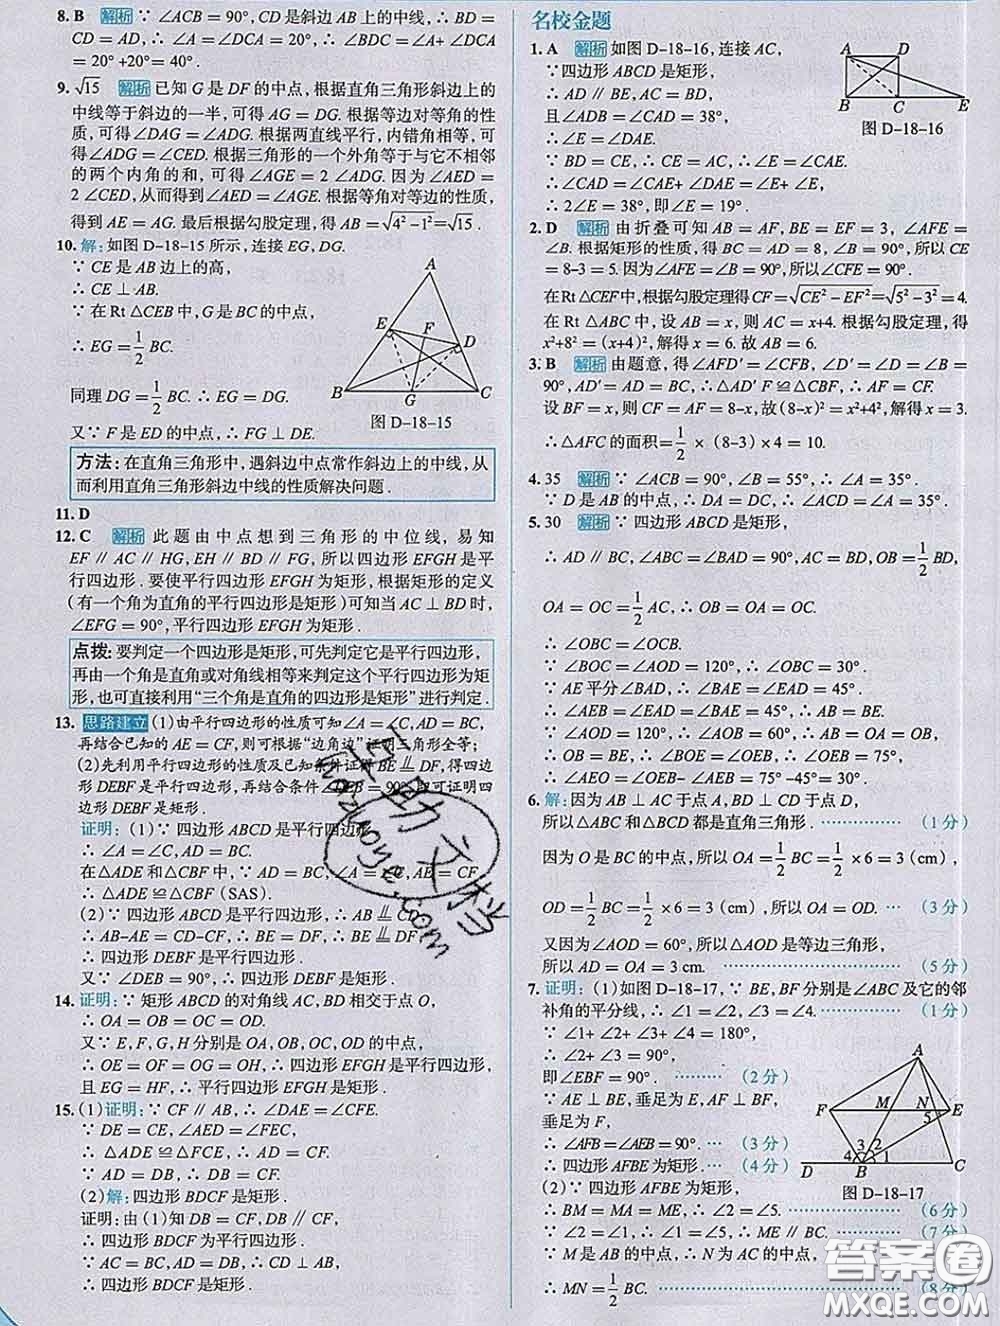 8. B 解析 ∵ ∠ACB = 90°, CD 是斜边 AB 上的中线, ∴ BD =
CD = AD, ∴ ∠A = ∠DCA = 20°, ∴ ∠BDC = ∠A+ ∠DCA
= 20° +20°= 40° .
9. √15 解析 已知 G 是 DF 的中点, 根据直角三角形斜边上的
中线等于斜边的一半, 可得 AG = DG. 根据等边对等角的性
质, 可得 ∠DAG = ∠ADG. 根据两直线平行, 内错角相等, 可
得 ∠ADG = ∠CED. 根据三角形的一个外角等于与它不相邻
的两个内角的和, 可得 ∠AGE = 2 ∠ADG. 因为 ∠AED =
2 ∠CED, 从而得到 ∠AED = ∠AGE. 根据等角对等边的性质,
得到 AE = AG. 最后根据勾股定理, 得 AB = √(4²-1²) = √15 .
10. 解: 如图 D-18-15 所示, 连接 EG, DG.
∵ CE 是 AB 边上的高,
∴ CE ⊥ AB.
∵ 在 Rt △CEB 中, G 是 BC 的中点,
∴ EG = 1/2 BC.
同理 DG = 1/2 BC. ∴ EG = DG.
又∵ F 是 ED 的中点, ∴ FG ⊥ DE.
A
E
F
D
B
G
C
图 D-18-15
方法: 在直角三角形中, 遇斜边中点常作斜边上的中线, 从
而利用直角三角形斜边中线的性质解决问题 .
11. D
12. C 解析 此题由中点想到三角形的中位线, 易知
EF ∥ AC ∥ HG, EH ∥ BD ∥ FG, 所以四边形 EFGH 是平
行四边形 . 要使平行四边形 EFGH 为矩形, 根据矩形的定义
(有一个角为直角的平行四边形是矩形) 可知当 AC ⊥ BD 时,
∠EFG = 90°, 平行四边形 EFGH 为矩形 .
点拨: 要判定一个四边形是矩形, 可先判定它是平行四边形,
再由一个角是直角或对角线相等来判定这个平行四边形为矩
形, 也可直接利用“三个角是直角的四边形是矩形”进行判定 .
13. 思路建立 (1) 由平行四边形的性质可知 ∠A = ∠C, AD = BC,
再结合已知的 AE = CF, 则可根据“边角边”证明三角形全等;
(2) 先利用平行四边形的性质及已知条件证得 BE ∥= DF, 得四边
形 DEBF 是平行四边形, 再结合条件 ∠DEB = 90° 即可证明四
边形 DEBF 是矩形 .
证明: (1) ∵ 四边形 ABCD 是平行四边形,
∴ ∠A = ∠C, AD = BC.
在 △ADE 和 △CBF 中, AD = BC, ∠A = ∠C, AE = CF,
∴ △ADE ≌ △CBF (SAS).
(2) ∵ 四边形 ABCD 是平行四边形, ∴ AB ∥= CD,
∴ AB-AE = CD-CF, ∴ BE = DF, ∴ BE ∥= DF,
∴ 四边形 DEBF 是平行四边形 .
又∵ ∠DEB = 90°, ∴ 四边形 DEBF 是矩形 .
14. 证明: ∵ 矩形 ABCD 的对角线 AC, BD 相交于点 O,
∴ OA = OB = OC = OD.
又∵ E, F, G, H 分别是 OA, OB, OC, OD 的中点,
∴ OE = OF = OG = OH, ∴ 四边形 EFGH 是平行四边形,
且 EG = HF, ∴ 平行四边形 EFGH 是矩形 .
15. (1) 证明: ∵ CF ∥ AB, ∴ ∠DAE = ∠CFE.
∵ DE = CE, ∠AED = ∠FEC,
∴ △ADE ≌ △FCE, ∴ AD = CF.
∵ AD = DB, ∴ DB = CF.
(2) 解: 四边形 BDCF 是矩形 .
证明: 由 (1) 知 DB = CF, DB ∥ CF,
∴ 四边形 BDCF 为平行四边形 .
∵ AC = BC, AD = DB, ∴ CD ⊥ AB,
∴ 四边形 BDCF 是矩形 .
名校金题
1. A 解析 如图 D-18-16, 连接 AC,
∵ 四边形 ABCD 是矩形,
∴ AD ∥ BE, AC = BD,
且 ∠ADB = ∠CAD = 38°,
∴ ∠E = ∠DAE.
∵ BD = CE, ∴ CE = AC, ∴ ∠E = ∠CAE.
∵ ∠CAD = ∠CAE+ ∠DAE = ∠E+ ∠E,
∴ 2∠E = 38°, 即 ∠E = 19° .
A
D
B
C
E
图 D-18-16
2. D 解析 由折叠可知 AB = AF, BE = EF = 3, ∠AFE =
∠B. 根据矩形的性质, 得 BC = AD = 8, ∠B = 90°, 所以 CE
= 8-3 = 5. 因为 ∠AFE = ∠B = 90°, 所以 ∠CFE = 90° .
在 Rt △CEF 中, 根据勾股定理得 CF = √(CE²-EF²) = √(5²-3²) = 4.
在 Rt △ABC 中, 设 AB = x, 则 AC = x+4. 根据勾股定理, 得
x²+8² = (x+4)², 解得 x = 6. 故 AB = 6.
3. B 解析 由题意, 得 ∠AFD′ = ∠CFB, ∠D′ = ∠D = ∠B =
90°, AD′ = AD = BC, ∴ △AD′F ≌ △CBF, ∴ AF = CF.
设 BF = x, 则 CF = AF = 8-x, 故 (8-x)² = x²+4², 解得 x = 3.
∴ △AFC 的面积 = 1/2 × (8-3) × 4 = 10.
4. 35 解析 ∵ ∠ACB = 90°, ∠B = 55°, ∴ ∠A = 35° .
∵ D 是 AB 的中点, ∴ DA = DC, ∴ ∠ACD = ∠A = 35° .
5. 30 解析 ∵ 四边形 ABCD 是矩形,
∴ AD ∥ BC, ∠ABC = ∠BAD = 90°, AC = BD, OB = 1/2 BD,
OA = OC = 1/2 AC, ∴ OB = OA = OC.
∴ ∠OBC = ∠OCB.
∵ ∠BOC = ∠AOD = 120°, ∴ ∠OBC = 30° .
∵ AE 平分 ∠BAD, ∴ ∠BAE = ∠EAD = 45° .
∴ ∠AEB = ∠EAD = 45° . ∴ AB = BE.
∵ ∠AOD = 120°, ∴ ∠AOB = 60°, ∴ AB = OA = OB,
∴ OB = BE, ∴ ∠BOE = ∠OEB = 75°,
∴ ∠AEO = ∠OEB- ∠AEB = 75°-45° = 30° .
6. 解: 因为 AB ⊥ AC 于点 A, BD ⊥ CD 于点 D,
所以 △ABC 和 △BCD 都是直角三角形 . ………… (1 分)
因为 O 是 BC 的中点, 所以 OA = 1/2 BC = 1/2 ×6 = 3 (cm),
OD = 1/2 BC = 1/2 ×6 = 3 (cm), 所以 OA = OD. … (3 分)
又因为 ∠AOD = 60°, 所以 △AOD 是等边三角形,
所以 AD = OA = 3 cm. ………… (5 分)
7. 证明: (1) 如图 D-18-17, ∵ BE, BF 分别是 ∠ABC 及它的邻
补角的平分线, ∴ ∠1 = ∠2, ∠3 = ∠4. ………… (1 分)
∵ ∠1+ ∠2+ ∠3+ ∠4 = 180°,
∴ ∠2+ ∠3 = 90°,
即 ∠EBF = 90° . ……… (2 分)
∵ AE ⊥ BE, 垂足为 E, AF ⊥ BF,
垂足为 F,
∴ ∠AFB = ∠AEB = 90° . … (3 分)
∴ 四边形 AFBE 为矩形 . … (4 分)
(2) ∵ 四边形 AFBE 为矩形,
∴ BM = MA = ME, ∴ ∠2 = ∠5. ………… (6 分)
∵ ∠2 = ∠1, ∴ ∠1 = ∠5, ∴ ME ∥ BC. ……… (7 分)
∵ M 是 AB 的中点, ∴ N 为 AC 的中点,
∴ MN = 1/2 BC. ………… (8 分)
A
F
M
N
E
5
3
2
4
1
D
B
C
图 D-18-17
作业帮文档
答案圈
MXQE.COM